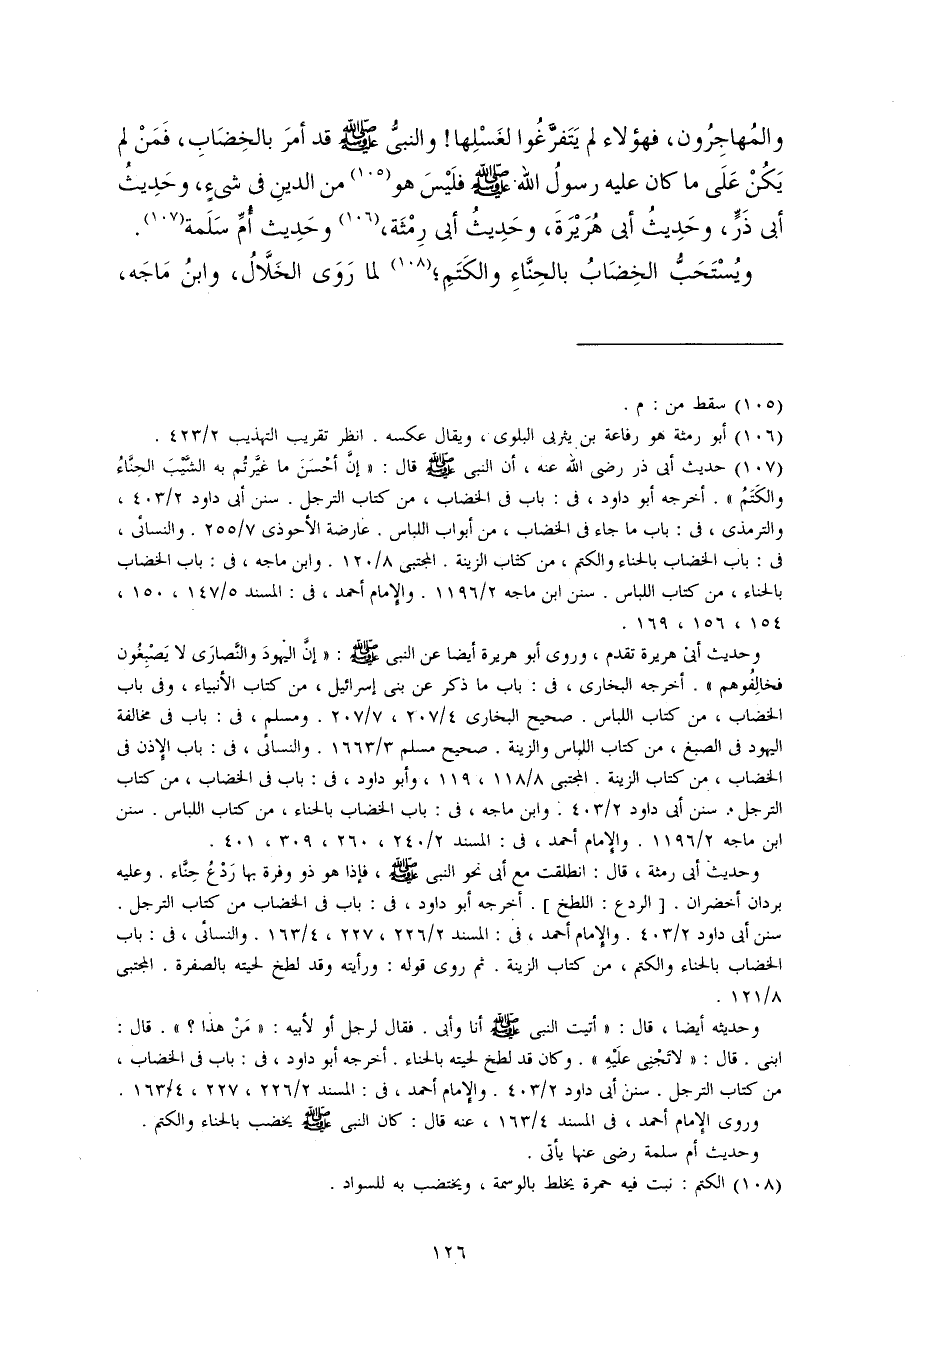 والمُهاجِرُون، فهؤلاء لم يَتَفرَّغُوا لغَسْلِها! والنبىُّ ﷺ قد أمرَ بالخِضَابِ، فَمَنْ لم
يَكُنْ عَلَى ما كان عليه رسولُ الله ﷺ فلَيْسَ هو(١٠٥) من الدينِ فى شىءٍ، وحَدِيثُ
أبى ذَرٍّ، وحَدِيثُ أبى هُرَيْرَةَ، وحَدِيثُ أبى رِمْثَة،(١٠٦) وحَدِيث أُمِّ سَلَمة(١٠٧).
ويُسْتَحَبُّ الخِضَابُ بالحِنَّاءِ والكَتَمِ؛(١٠٨) لما رَوَى الخَلَّالُ، وابنُ مَاجَه،
(١٠٥) سقط من : م .
(١٠٦) أبو رمثة هو رفاعة بن يثربى البلوى ، ويقال عكسه . انظر تقريب التهذيب ٤٢٣/٢ .
(١٠٧) حديث أبى ذر رضى الله عنه ، أن النبى ﷺ قال : « إنَّ أحْسَنَ ما غيَّرتُم به الشَّيْبَ الحِنَّاءُ
والكَتَمُ » . أخرجه أبو داود ، فى : باب فى الخضاب ، من كتاب الترجل . سنن أبى داود ٤٠٣/٢ ،
والترمذى ، فى : باب ما جاء فى الخضاب ، من أبواب اللباس . عارضة الأحوذى ٢٥٥/٧ . والنسائى ،
فى : باب الخضاب بالحناء والكتم ، من كتاب الزينة . المجتبى ١٢٠/٨ . وابن ماجه ، فى : باب الخضاب
بالحناء ، من كتاب اللباس . سنن ابن ماجه ١١٩٦/٢ . والإمام أحمد ، فى : المسند ١٤٧/٥ ، ١٥٠ ،
١٥٤ ، ١٥٦ ، ١٦٩ .
وحديث أبى هريرة تقدم ، وروى أبو هريرة أيضا عن النبى ﷺ : « إنَّ اليهودَ والنَّصارَى لا يَصْبِغُون
فخالِفُوهم » . أخرجه البخارى ، فى : باب ما ذكر عن بنى إسرائيل ، من كتاب الأنبياء ، وفى باب
الخضاب ، من كتاب اللباس . صحيح البخارى ٢٠٧/٤ ، ٢٠٧/٧ . ومسلم ، فى : باب فى مخالفة
اليهود فى الصبغ ، من كتاب اللباس والزينة . صحيح مسلم ١٦٦٣/٣ . والنسائى ، فى : باب الإذن فى
الخضاب ، من كتاب الزينة . المجتبى ١١٨/٨ ، ١١٩ ، وأبو داود ، فى : باب فى الخضاب ، من كتاب
الترجل . سنن أبى داود ٤٠٣/٢ . وابن ماجه ، فى : باب الخضاب بالحناء ، من كتاب اللباس . سنن
ابن ماجه ١١٩٦/٢ . والإمام أحمد ، فى : المسند ٢٤٠/٢ ، ٢٦٠ ، ٣٠٩ ، ٤٠١ .
وحديث أبى رمثة ، قال : انطلقت مع أبى نحو النبى ﷺ ، فإذا هو ذو وفرة بها رَدْعُ حِنَّاء . وعليه
بردان أخضران . [ الردع : اللطخ ] . أخرجه أبو داود ، فى : باب فى الخضاب من كتاب الترجل .
سنن أبى داود ٤٠٣/٢ . والإمام أحمد ، فى : المسند ٢٢٦/٢ ، ٢٢٧ ، ١٦٣/٤ . والنسائى ، فى : باب
الخضاب بالحناء والكتم ، من كتاب الزينة . ثم روى قوله : ورأيته وقد لطخ لحيته بالصفرة . المجتبى
١٢١/٨ .
وحديثه أيضا ، قال : « أتيت النبى ﷺ أنا وأبى . فقال لرجل أو لأبيه : « مَنْ هذا ؟ » . قال :
ابنى . قال : « لاتَجْنِى عليْهِ » . وكان قد لطخ لحيته بالحناء . أخرجه أبو داود ، فى : باب فى الخضاب ،
من كتاب الترجل . سنن أبى داود ٤٠٣/٢ . والإمام أحمد ، فى : المسند ٢٢٦/٢ ، ٢٢٧ ، ١٦٣/٤ .
وروى الإمام أحمد ، فى المسند ١٦٣/٤ ، عنه قال : كان النبى ﷺ يخضب بالحناء والكتم .
وحديث أم سلمة رضى عنها يأتى .
(١٠٨) الكتم : نبت فيه حمرة يخلط بالوسمة ، ويختضب به للسواد .
١٢٦